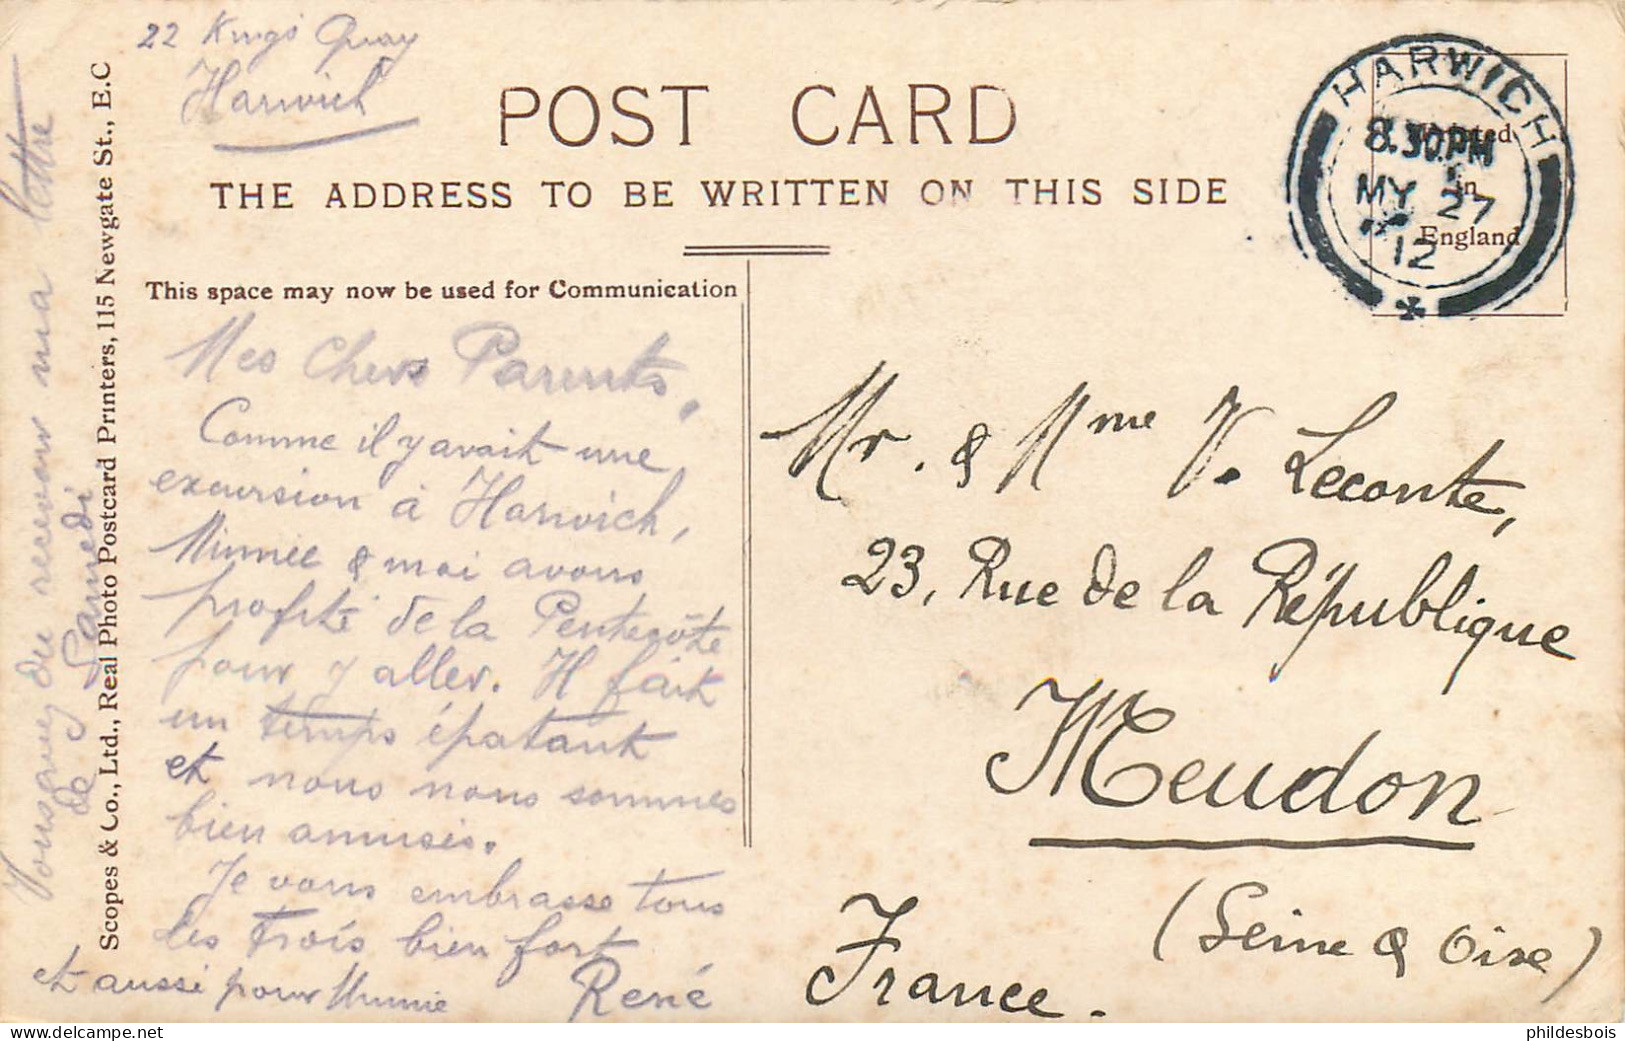 22 King's Quay
Harwich
POST CARD
THE ADDRESS TO BE WRITTEN ON THIS SIDE
HARWICH
8.30PM
MY 27
12
Printed
in
England
This space may now be used for Communication
Mes Chers Parents,
Comme il y avait une
excursion à Harwich,
Minnie & moi avons
profité de la Pentecôte
pour y aller. Il fait
un temps épatant
et nous nous sommes
bien amusés.
Je vous embrasse tous
les trois bien fort
et aussi pour Minnie
René
Vous avez du recevoir ma lettre
de Samedi
Scopes & Co., Ltd., Real Photo Postcard Printers, 115 Newgate St., E.C
Mr. & Mme V. Leconte,
23, Rue de la République
Meudon
(Seine & Oise)
France.
phildesbois